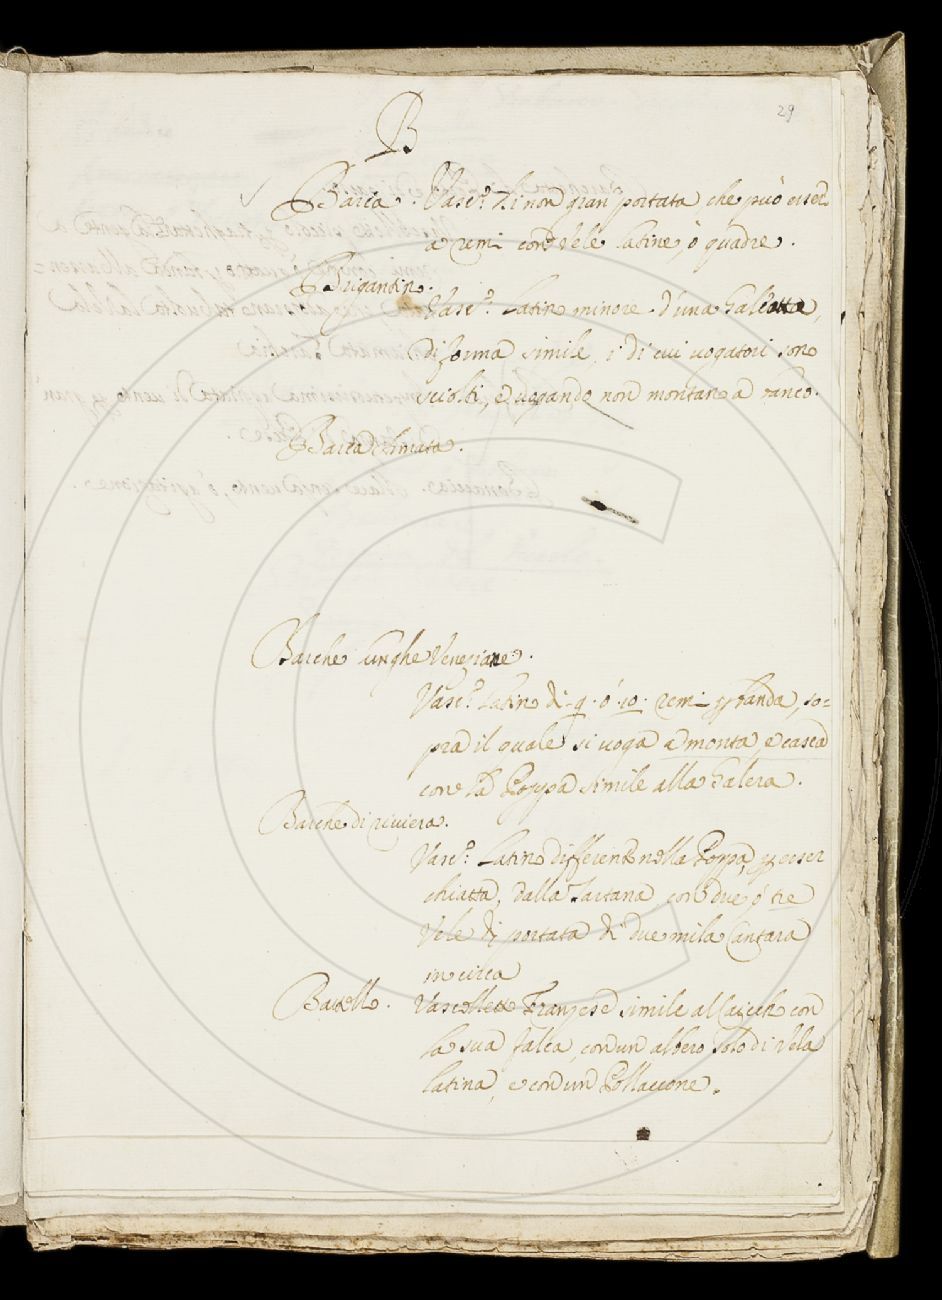 29
B
Barca. Vasc.º di non gran portata che può esser
a remi con vele latine, ò quadre.
Brigantino.
Vasc.º Latino minore d'una Galeotta,
di forma simile, i di cui uogatori sono
sciolti, e uogando non montano a banco.
Barca
Barche lunghe Veneziane.
Vasc.º Latino di 9. ò 10. remi p banda, so=
pra il quale si uoga a monta, e casca
con la Poppa simile alla Galera.
Barche di riuiera.
Vasc.º Latino differente nella Poppa, p esser
chiatta, dalla Tartana con due, ò tre
Vele di portata di due mila Cantara
in circa
Battello. Vascelletto Franzese simile al Caicch con
la sua falca, con un albero solo di Vela
latina, e con un Pollaccone.